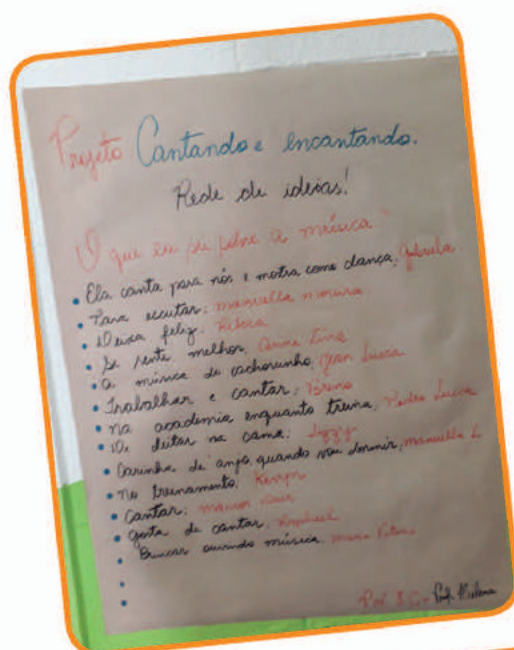 Projeto Cantando e encantando.
Rede de ideias!
O que eu sei sobre a música?
Ela canta para nós e mostra como dança; Gabriela.
Para escutar; manuella moreira
Deixa feliz; Rebeca
Se sente melhor; Anna Lívia
a música do cachorrinho; Jean Lucca
Trabalhar e cantar; Breno
na academia enquanto treina; Pedro Lucca
De deitar na cama;
Carinha de anjo, quando vou dormir; manuella L
no treinamento;
Cantar;
gosta de cantar; Raphael
Brincar ouvindo música.
Prof. Milena